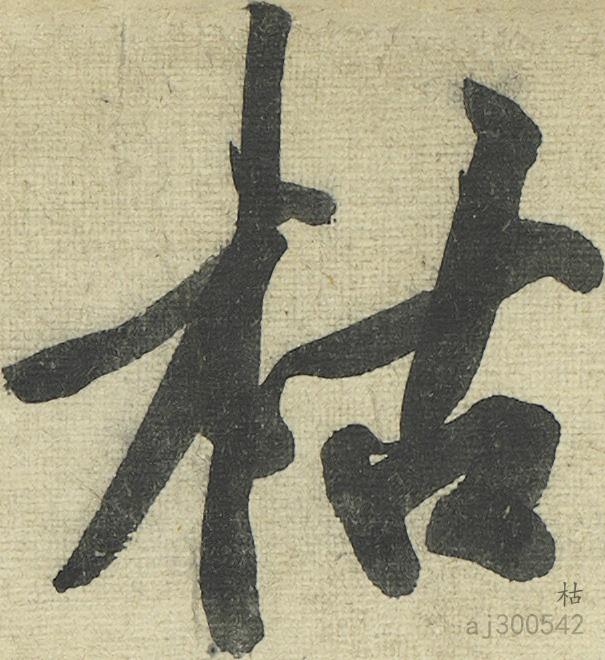 枯
枯
aj300542